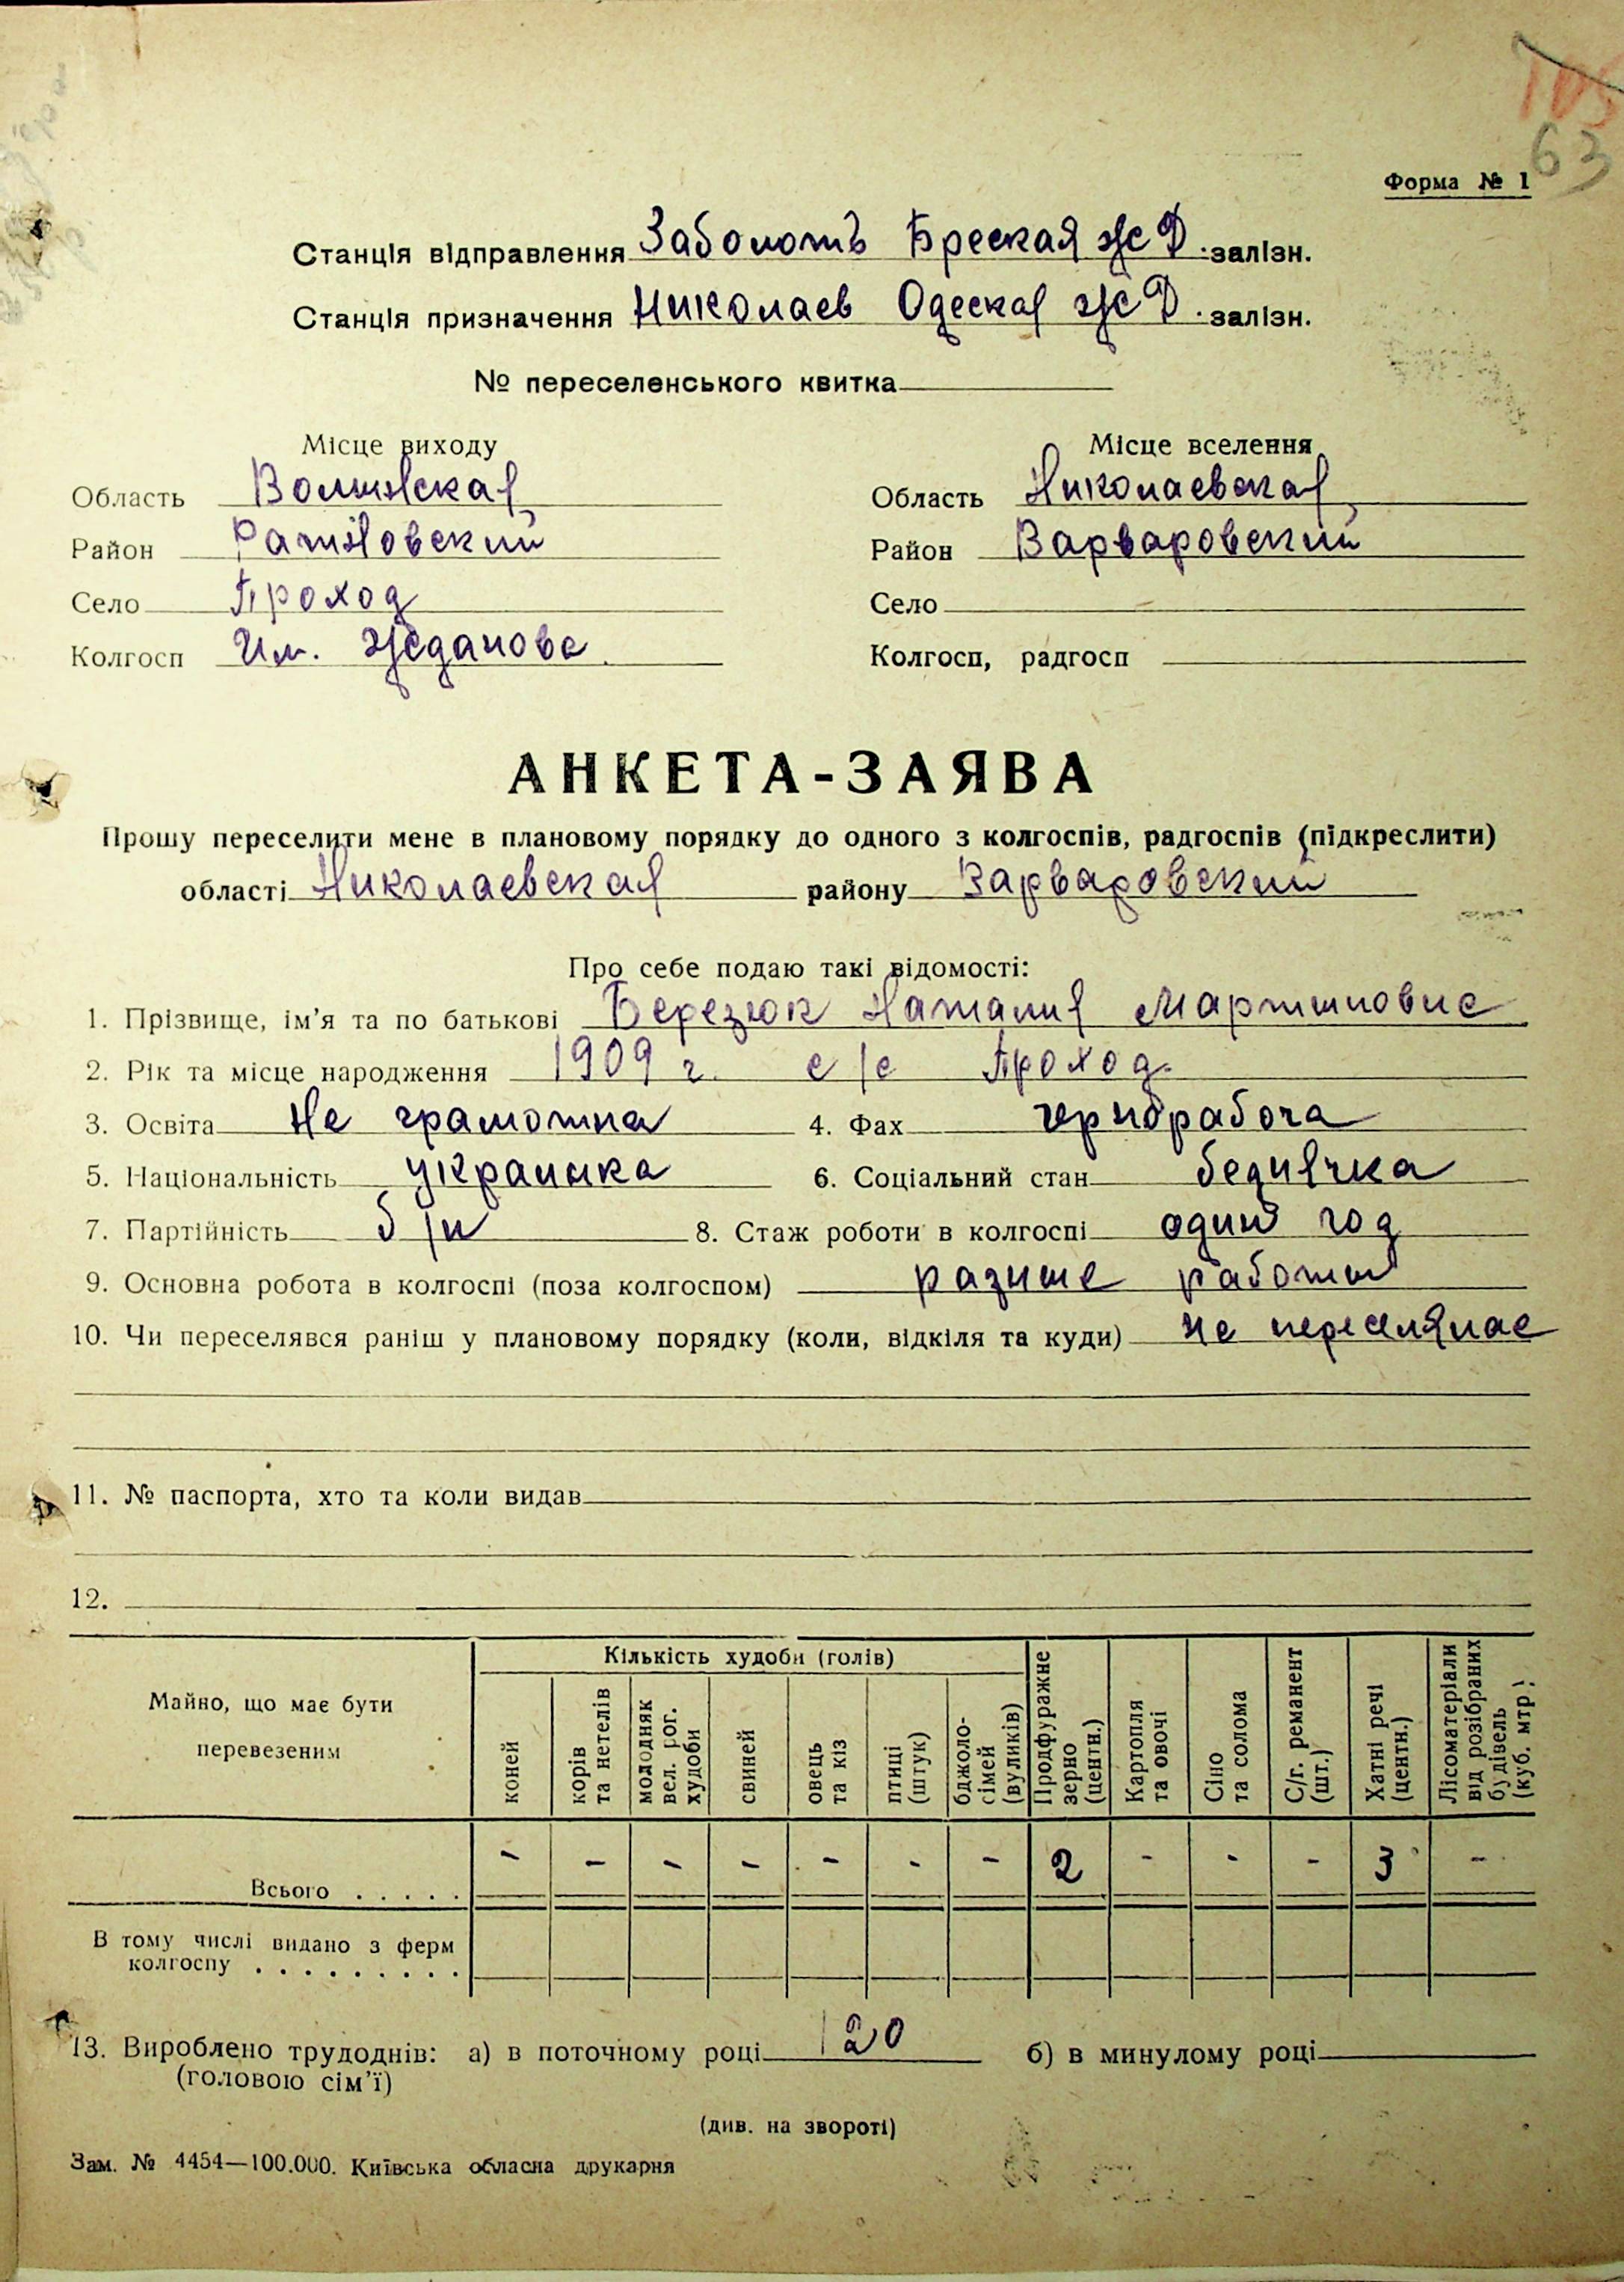 105
63
Форма № 1
Станція відправлення Заболоть Бреская ж Д. залізн.
Станція призначення Николаев Одеская ж Д. залізн.
№ переселенського квитка
Місце виходу
Область Волынская
Район Ратновский
Село Проход
Колгосп Им. Жданова
Місце вселення
Область Николаевская
Район Варваровский
Село
Колгосп, радгосп
АНКЕТА-ЗАЯВА
Прошу переселити мене в плановому порядку до одного з колгоспів, радгоспів (підкреслити)
області Николаевская району Варваровский
Про себе подаю такі відомості:
1. Прізвище, ім'я та по батькові Березюк Наталия
2. Рік та місце народження 1909 г. с/с Проход.
3. Освіта не грамотна 4. Фах чернорабоча
5. Національність украинка 6. Соціальний стан беднячка
7. Партійність б/п 8. Стаж роботи в колгоспі один год
9. Основна робота в колгоспі (поза колгоспом) разные работы
10. Чи переселявся раніш у плановому порядку (коли, відкіля та куди) не
11. № паспорта, хто та коли видав
12.
Майно, що має бути перевезеним
Кількість худоби (голів)
коней
корів та нетелів
молодняк вел. рог. худоби
свиней
овець та кіз
птиці (штук)
бджоло-сімей (вуликів)
Продфуражне зерно (центн.)
Картопля та овочі
Сіно та солома
С/г. реманент (шт.)
Хатні речі (центн.)
Лісоматеріали від розібраних будівель (куб. мтр.)
Всього . . . . . - - - - - - - 2 - - - 3 -
В тому числі видано з ферм
колгоспу . . . . . . . . .
13. Вироблено трудоднів: а) в поточному році 120 б) в минулому році
(головою сім'ї)
(див. на звороті)
Зам. № 4454—100.000. Київська обласна друкарня